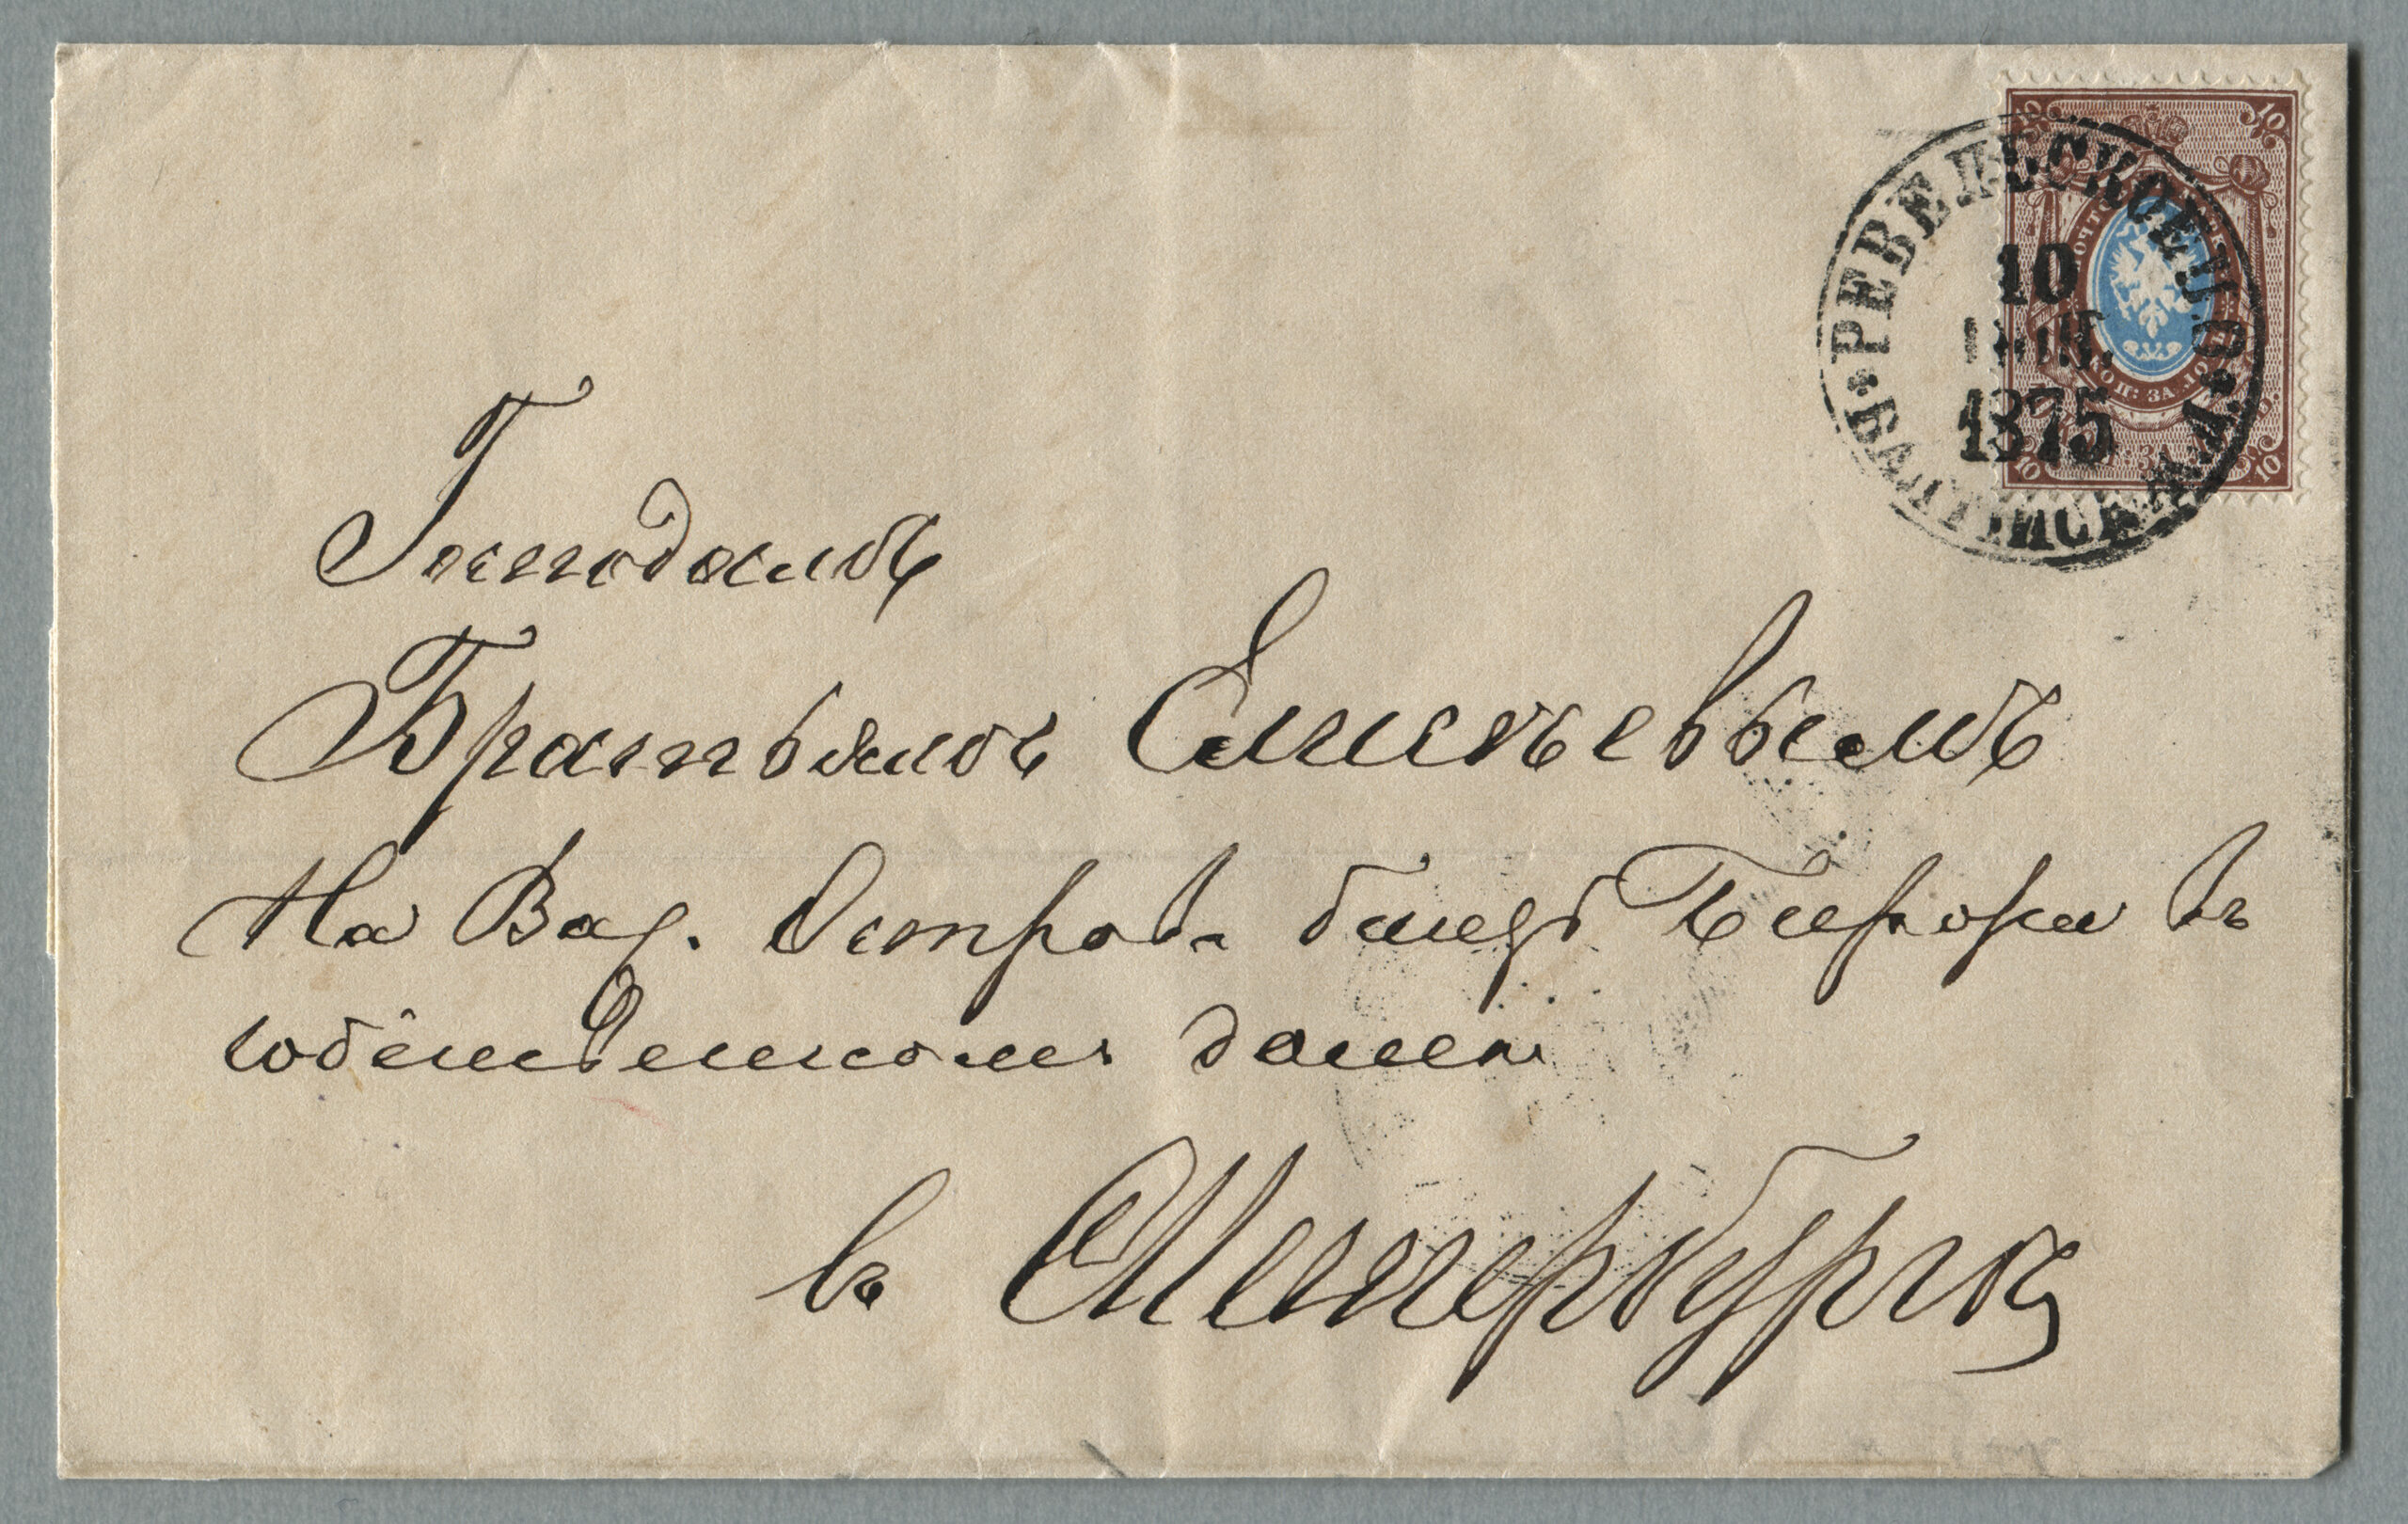 10
РЕВЕЛЬСКОЕ П. О.
10
1875
Господамъ
Братьямъ Елисѣевымъ
На Вас. Остров. близъ Биржи въ
собственномъ домѣ
въ СПетербургѣ